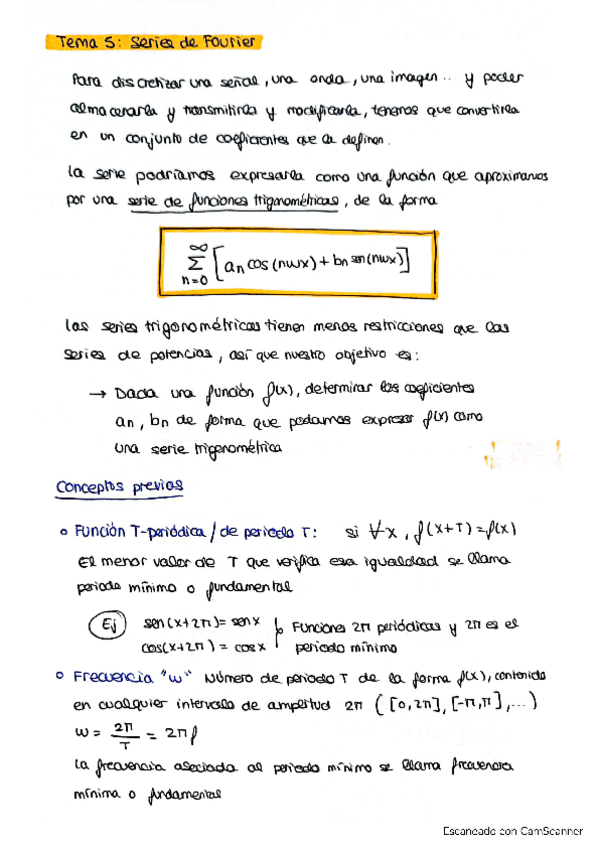 Tema 5: Series de Fourier
Para discretizar una señal, una onda, una imagen.. y poder
almacenarla y transmitirla y modificarla, tenemos que convertirla
en un conjunto de coeficientes que la definen.
La serie podríamos expresarla como una función que aproximamos
por una serie de funciones trigonométricas, de la forma
∞
Σ [an cos(nwx) + bn sen(nwx)]
n=0
Las series trigonométricas tienen menos restricciones que las
series de potencias, así que nuestro objetivo es:
→ Dada una función f(x), determinar los coeficientes
an, bn de forma que podamos expresar f(x) como
una serie trigonométrica
Conceptos previos
o Función T-periódica / de periodo T: si ∀x, f(x+T)=f(x)
El menor valor de T que verifica esa igualdad se llama
periodo mínimo o fundamental
Ej sen(x+2π)= sen x
cos(x+2π) = cos x
Funciones 2π periódicas y 2π es el
periodo mínimo
o Frecuencia "w" Número de periodo T de la forma f(x), contenido
en cualquier intervalo de amplitud 2π ([0,2π], [-π,π],...)
w = 2π/T = 2πf
La frecuencia asociada al periodo mínimo se llama frecuencia
mínima o fundamental
Escaneado con CamScanner